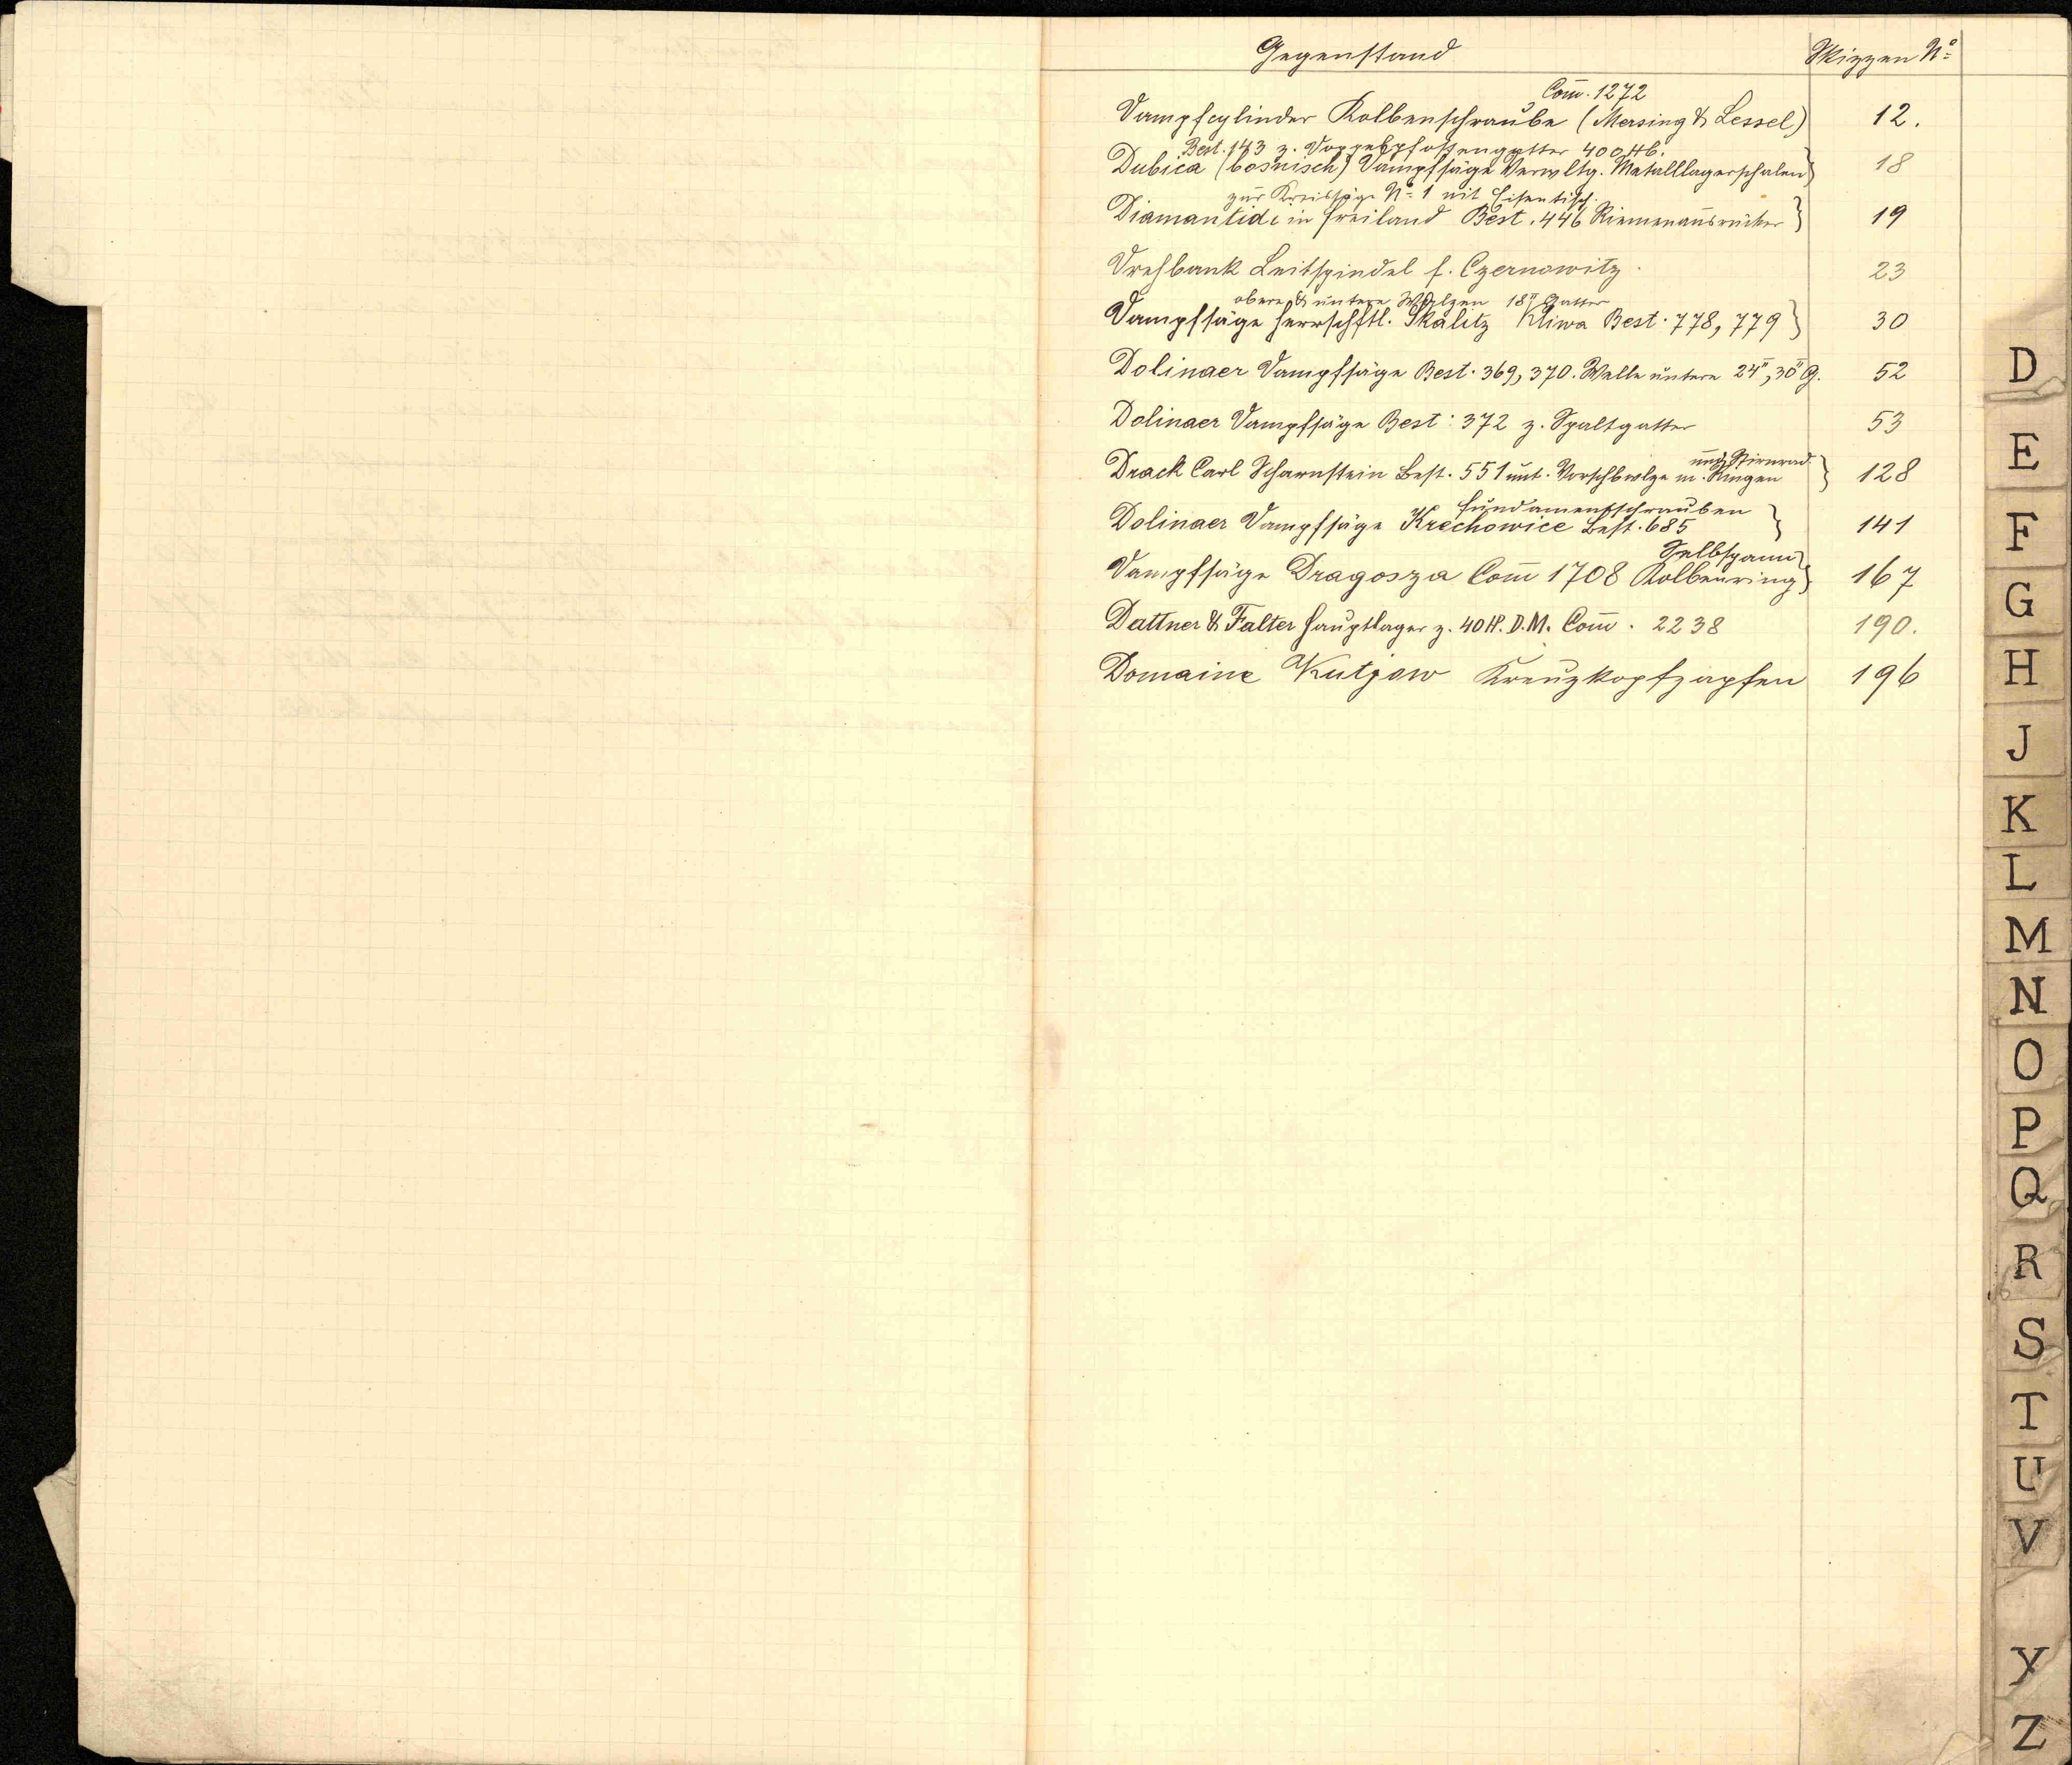 Gegenstand Skizzen No
Com̅. 1272
Dampfcylinder Kolbenschraube (Mersing & Lessel) 12.
Best. 143 z. Doppelpfostengatter 400 Hb.
Dubica (bosnisch) Dampfsäge Verwltg. Metalllagerschalen 18
zur Kreissäge No 1 mit Eisentisch
Diamantidi in Freiland Best. 446 Riemenausrücker 19
Drehbank Leitspindel f. Czernowitz. 23
obere & untere Walzen 18" Gatter
Dampfsäge Herrschftl. Skalitz Kliwa Best. 778, 779 30
Dolinaer Dampfsäge Best. 369, 370. Welle untere 24", 30" G. 52
Dolinaer Dampfsäge Best: 372 z. Spaltgatter 53
und Stirnrad
Drack Carl Scharnstein Best. 551 unt. Vorschbwlze m. Ringen 128
Fundamentschrauben
Dolinaer Dampfsäge Krechowice Best. 685 141
Selbspann
Dampfsäge Dragosza Com̅ 1708 Kolbenring 167
Dattner & Falter Hauptlager z. 40 H. D.M. Com̅. 2238 190.
Domaine Kutjow Kreuzkopfzapfen 196
D
E
F
G
H
J
K
L
M
N
O
P
Q
R
S
T
U
V
Y
Z